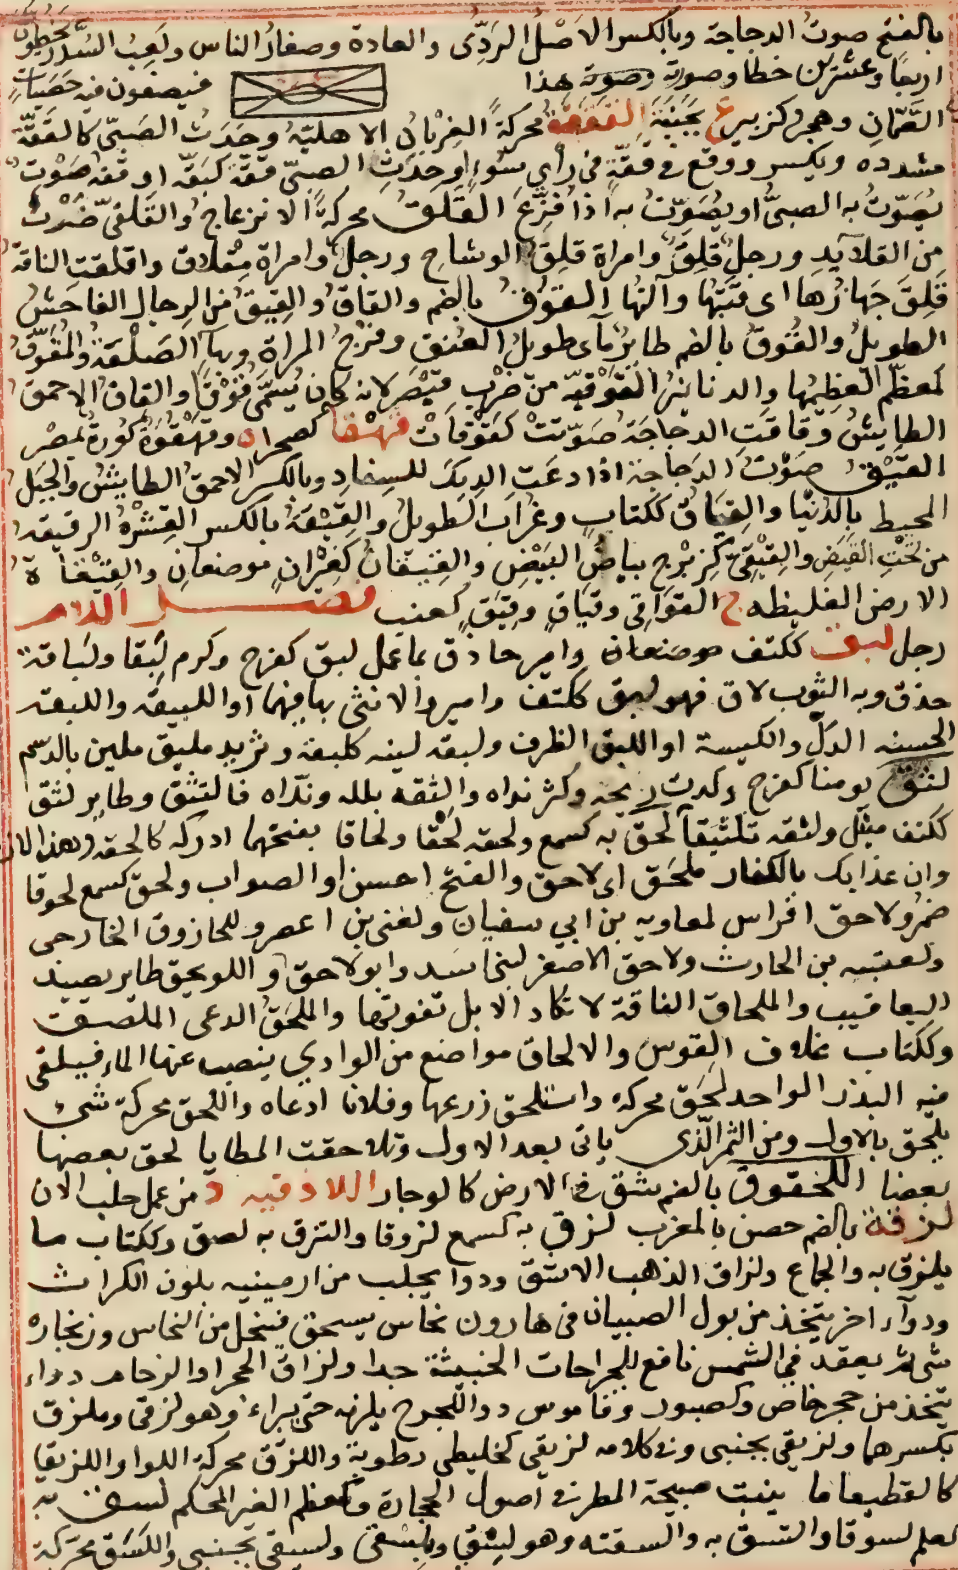 بالفتح صوت الدجاجة وبالكسر الاصل الردى والعادة وصغار الناس ولعب السدر يخطون
اربعا وعشرين خطا وصورته وصوته هذا فيصفون فيه حصيات
القمان وهجر وكزبير ع بجنبة الققققة محركة الغربان الاهلية وحدث الصبى كالققة
مشدده ويكسر ووقع فى ققة فى راى سوء او حدث الصبى ققة كبقة او ققه صوت
يصوت به الصبى او يصوت به اذا فزع القلق محركة الانزعاج والقلقى ضرب
من القلايد ورجل قلق وامراة قلق الوشاح ورجل وامراة مقلاق واقلقت الناقة
قلق جهازها اى قتبها وآلتها القوق بالضم والقاق والقيق من الرجال الفاحش
الطويل والقوق بالضم طاير مآى طويل العنق وفرج المراة وبهآ الصلعة والمقوق
كمعظم العظيمها والدنانير القوقية من ضرب قيصر لانه كان يسمى قوقا والقاق الاحمق
الطايش وقاقت الدجاجة صوتت كقوقات قهقا كصحراه وقهقوة كورة بمصر
القيق صوت الدجاجة اذا دعت الديك للسفاد وبالكسر الاحمق الطايش والجبل
المحيط بالدنيا والقياق ككتاب وغراب الطويل والقيقة بالكسر القشرة الرقيقة
من تحت القيض والقيقئ كزبرج بياض البيض والقيقان كغيران موضعان والقيقاة
الارض الغليظه ج القواقى وقياق وقيق كعنب فصل اللام
رجل لبق ككتف وامير حاذق بما عمل لبق كفرح وكرم لبقا ولباقة
حذق وبه الثوب لاق فهو لبق ككتف وامير والانثى بهآ فيهما او اللبيقه واللبقه
الحسنه الدل والكيسة او اللبق الظرف ولبقه لينه كلبقه وثريد ملبق ملين بالدسم
لثق يومنا كفرح ركدت ريحه وكثر نداه والثقه بلله ونداه فالتثق وطاير لثق
ككتف مبتل ولثقه تلثيقا لحق به كسمع ولحقه لحقا ولحاقا بفتحهما ادركه كالحقه وهذا لازم
وان عذابك بالكفار ملحق اى لاحق والفتح احسن او الصواب ولحق كسمع لحوقا
ضمر ولاحق افراس لمعاويه بن ابي سفيان ولغنى بن اعصر وللحازوق الخارجى
ولعتيبه بن الحارث ولاحق الاصغر لبنى اسد وابو لاحق واللويحق طاير يصيد
اليعاقيب والملحاق الناقة لا تكاد الابل تفوتها والملحق الدعى الملصق
وككتاب غلاف القوس والالحاق مواضع من الوادي ينضب عنها الماء فيلقى
فيه البذر الواحد لحق محركه واستلحق زرعها وفلانا ادعاه واللحق محركة شئ
يلحق بالاول ومن الثمر الذى ياتى بعد الاول وتلاحقت المطايا لحق بعضها
بعضا اللخقوق بالضم شق فى الارض كالوجار اللاذقيه د من عمل حلب الان
لزقة بالضم حصن بالمغرب لزق به كسمع لزوقا والتزق به لصق وككتاب ما
يلزق به والجماع ولزاق الذهب الاشق ودوا يجلب من ارمينيه بلون الكراث
ودوآء اخر يتخذ من بول الصبيان فى هاون نحاس يسحق فينحل من النحاس وزنجاره
شئ ثم يعقد فى الشمس نافع للجراحات الخبيثة جدا ولزاق الحجر او الرخام دواء
يتخذ من حجر خاص وكصبور وقاموس دوا للجرح يلزمه حتى يبراء وهو لزقى وملزق
بكسرهما ولزيقى بجنبى وفى كلامه لزيقى كخليطى رطوبة واللزق محركة اللوا واللزيقا
كالقطيعا ما ينبت صبيحة المطر فى اصول الحجارة وكمعظم الغير المحكم لسق به
كعلم لسوقا والتسق به والسقته وهو لسقى وبلسقى ولسيقى بجنبى واللسق محركة